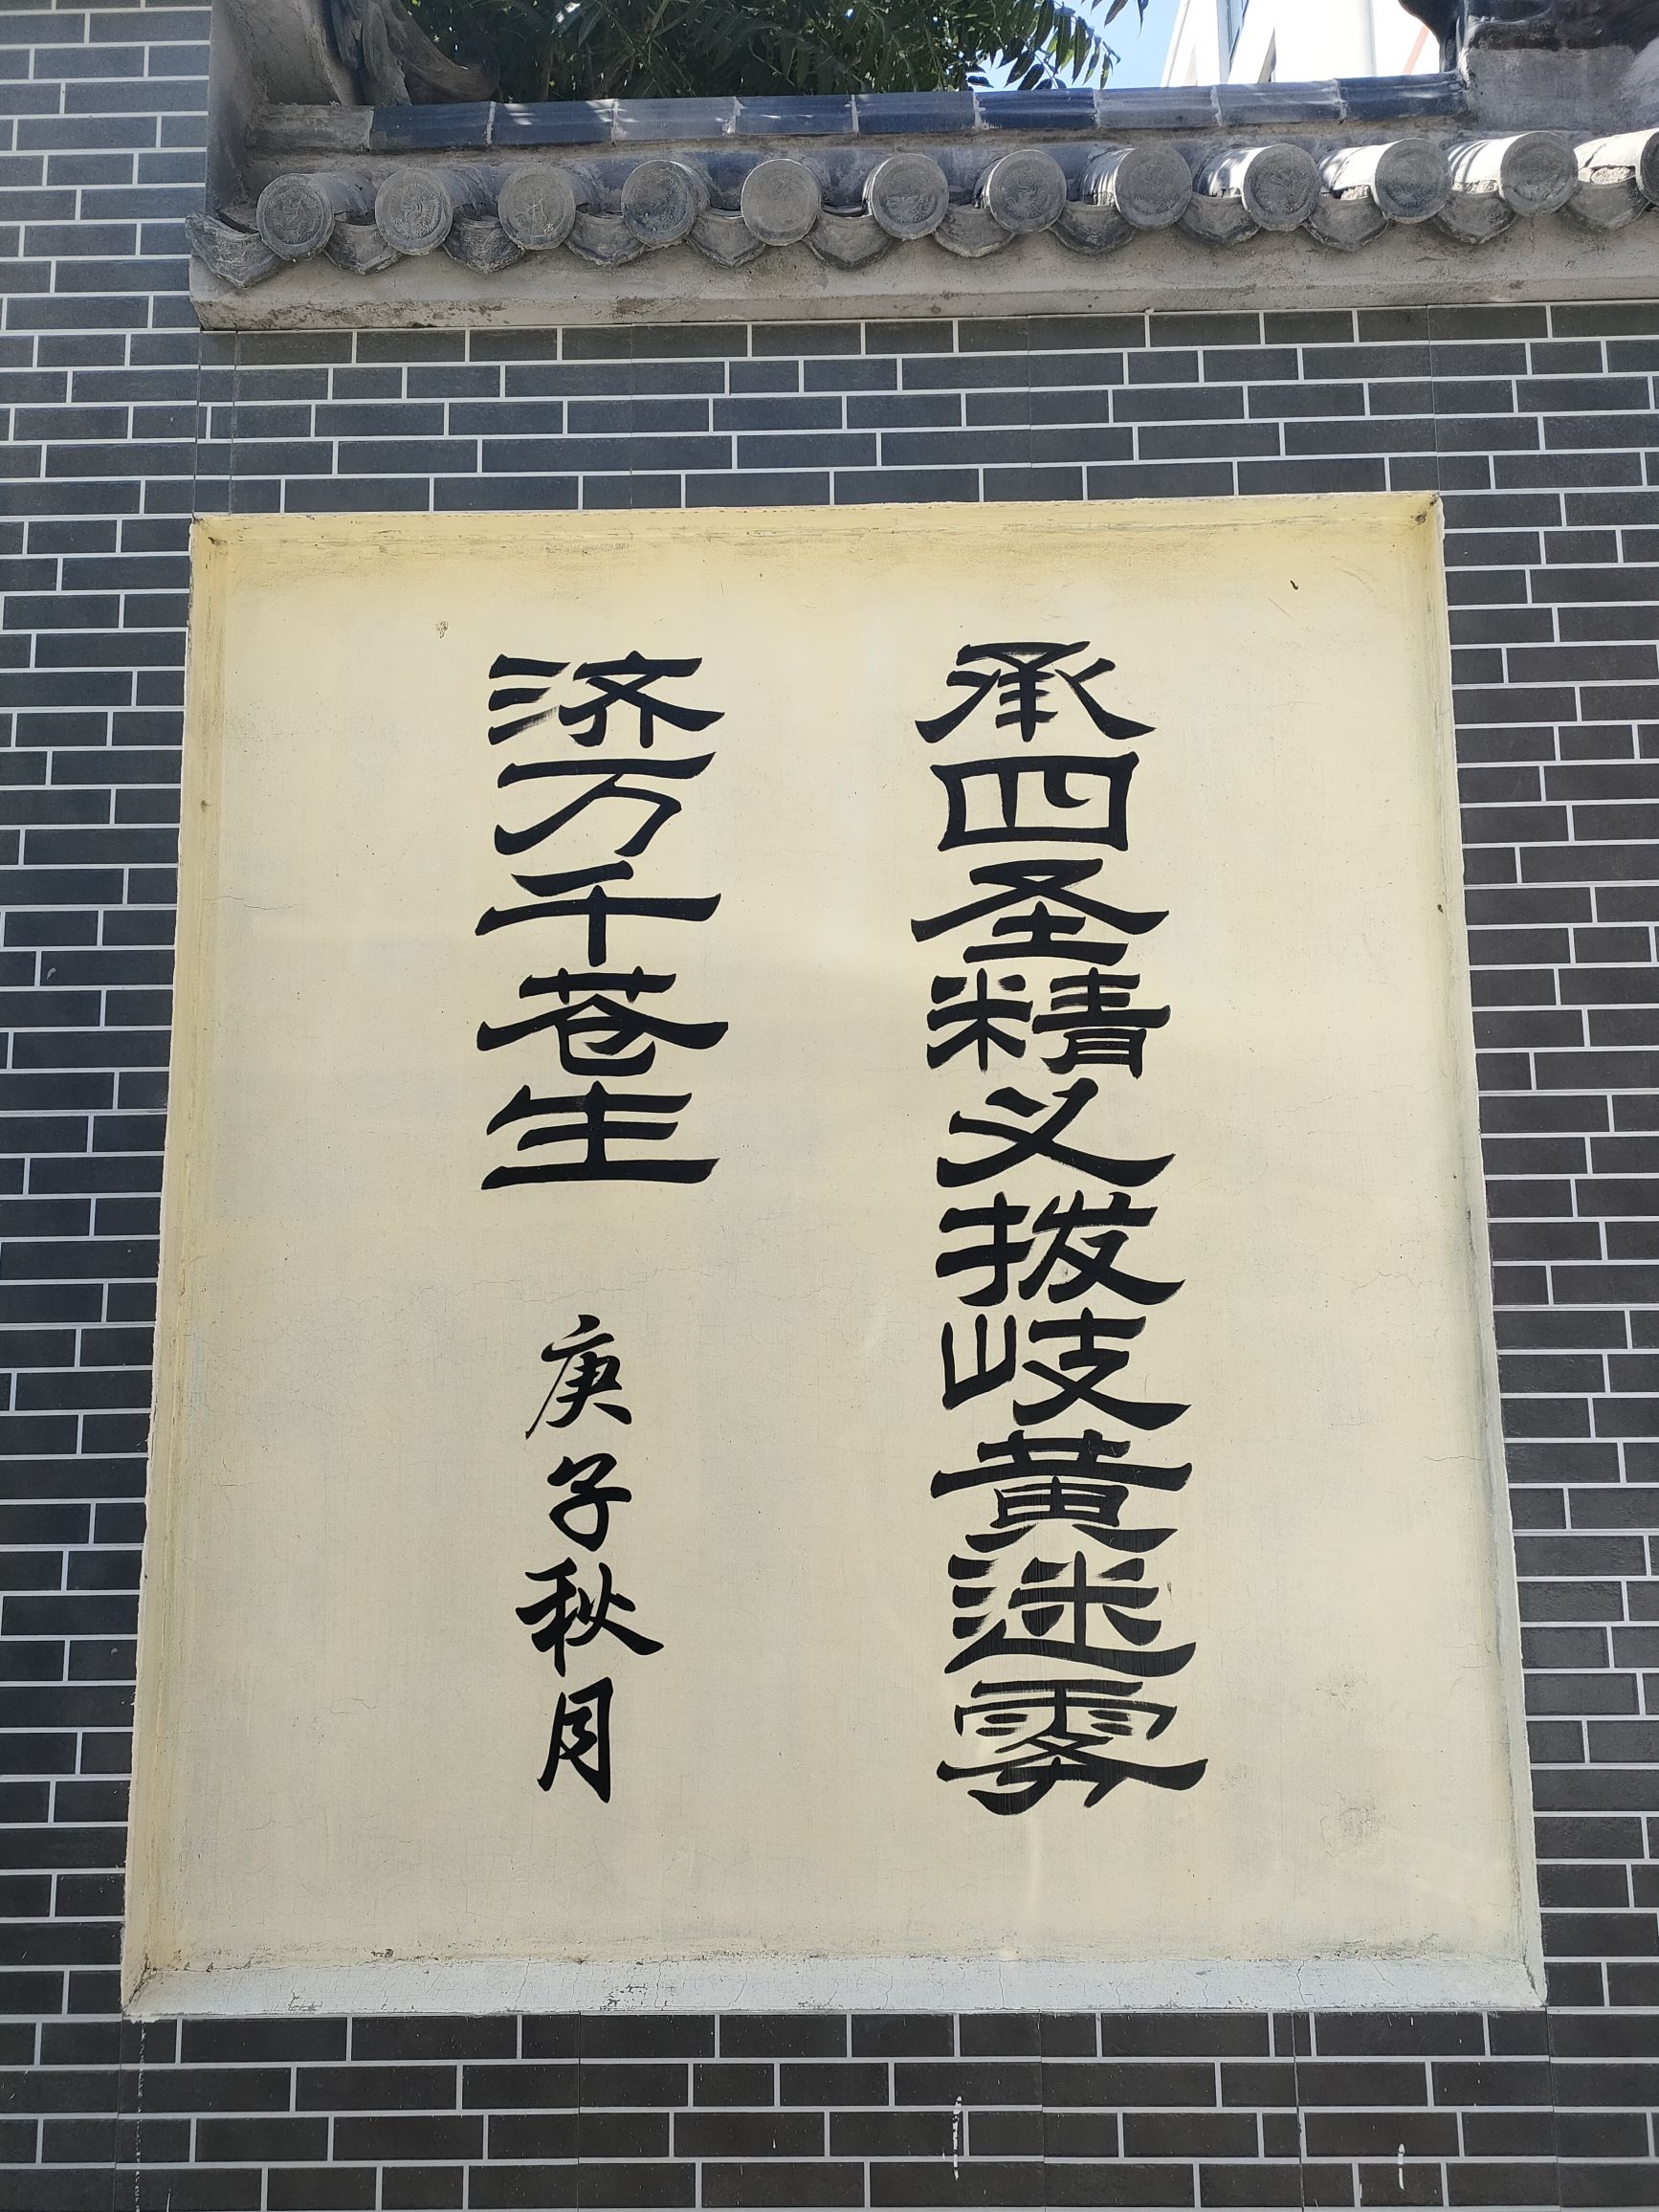 承四圣精义拨岐黄迷雾
济万千苍生
庚子秋月